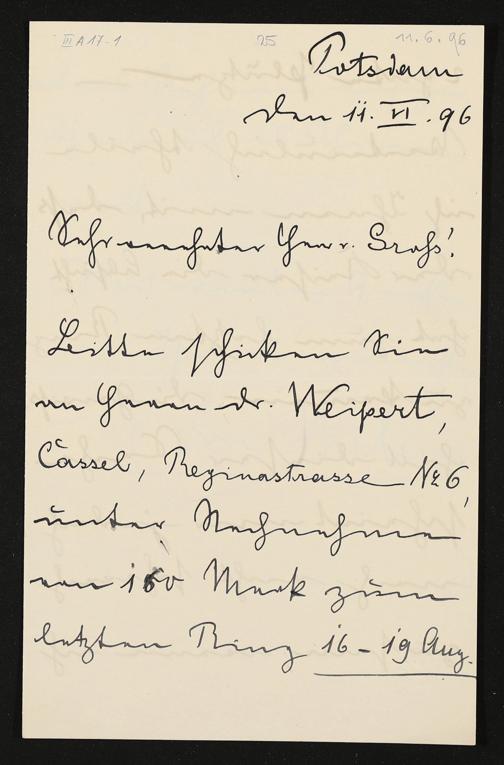 III A 17-1 25 11.6.96
Potsdam
den 11. VI. 96
Sehr verehrter Herr v. Groß!
Bitte schicken Sie
an Herrn Dr. Weipert,
Cassel, Reginastrasse № 6,
unter Nachnahme
von 160 Mark zum
letzten Ring 16 – 19 Aug.